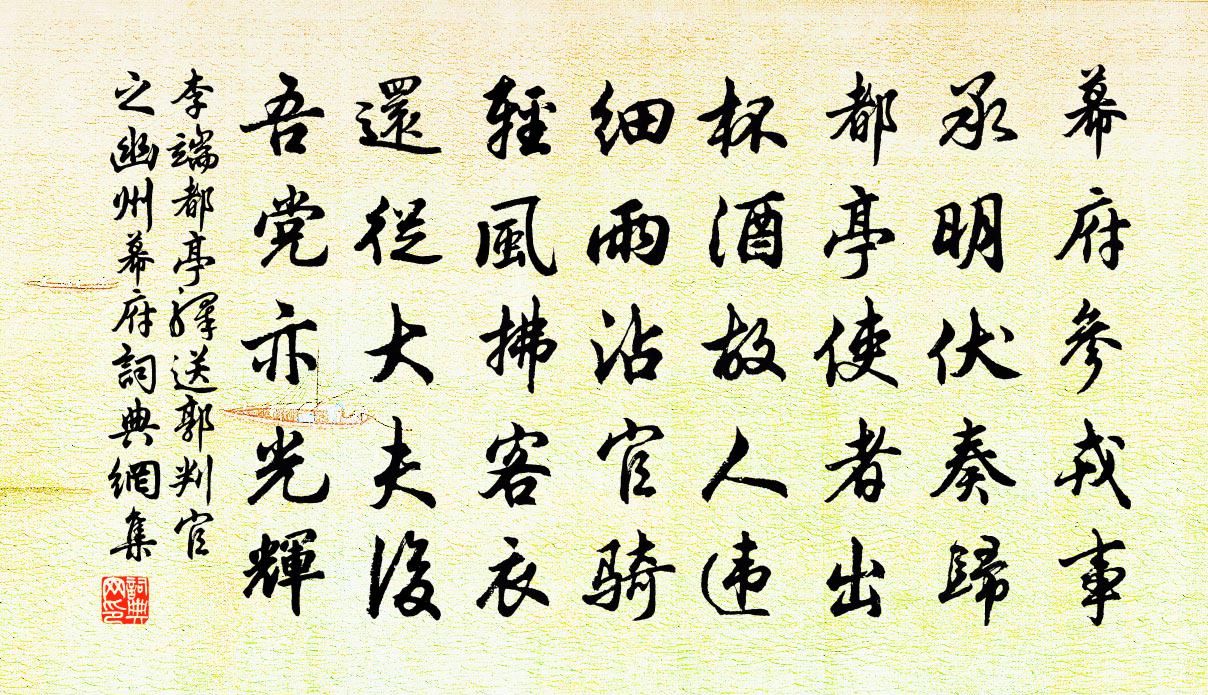 幕府參戎事
承明伏奏歸
都亭使者出
杯酒故人违
细雨沾官骑
輕風拂客衣
還從大夫後
吾党亦光輝
李端都亭驛送郭判官
之幽州幕府詞典網集
詞典网印